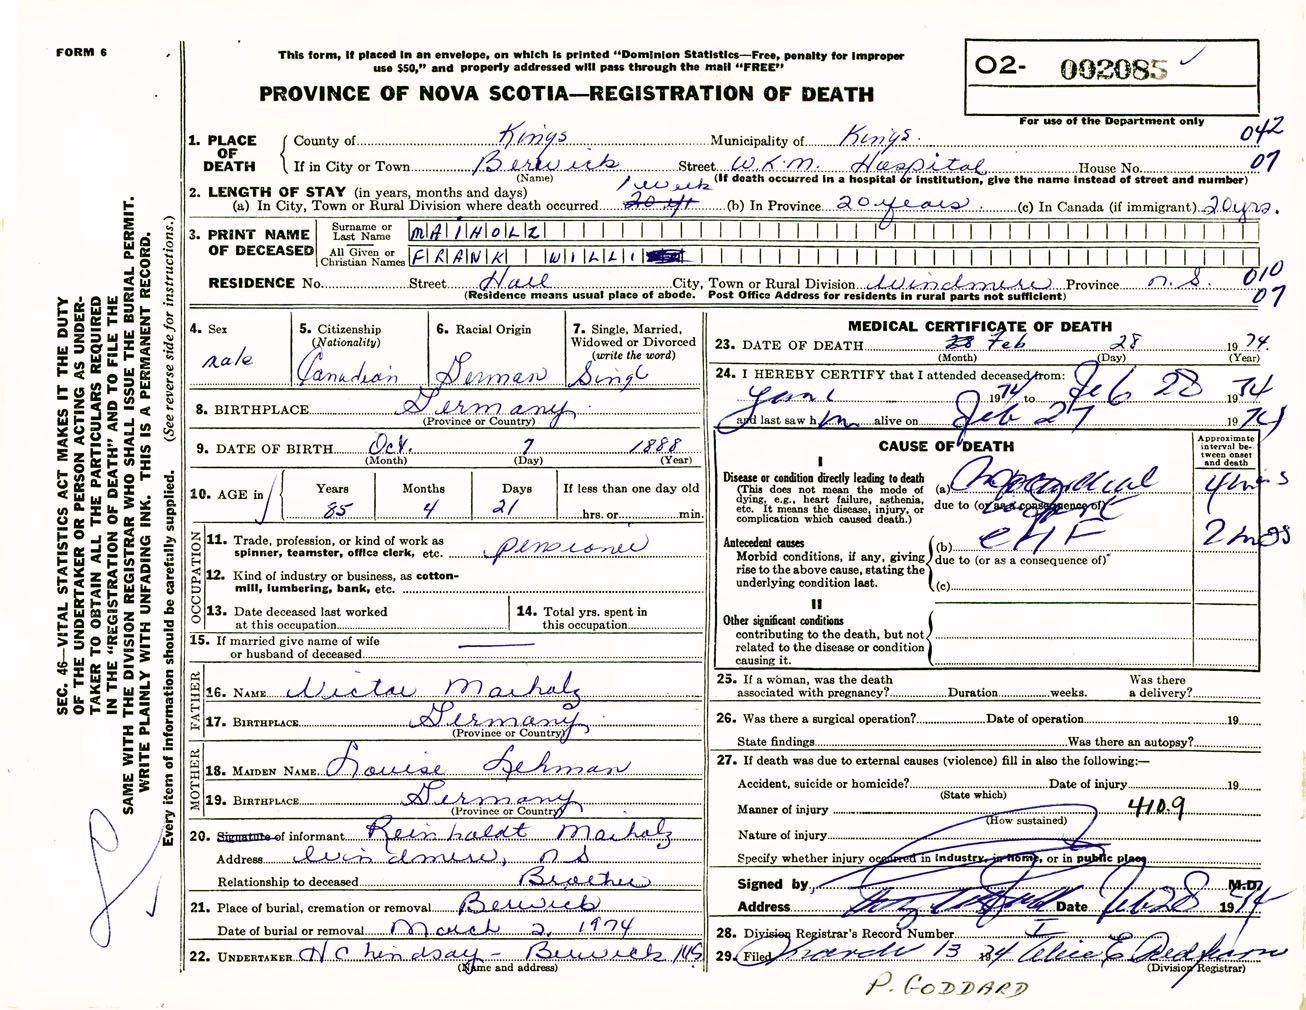 FORM 6
This form, if placed in an envelope, on which is printed "Dominion Statistics—Free, penalty for improper
use $50," and properly addressed will pass through the mail "FREE"
PROVINCE OF NOVA SCOTIA—REGISTRATION OF DEATH
O2- 002085
For use of the Department only
042
07
1. PLACE OF DEATH
County of Kings Municipality of Kings.
If in City or Town Berwick Street W.K.M. Hospital House No.
(Name) (If death occurred in a hospital or institution, give the name instead of street and number)
2. LENGTH OF STAY (in years, months and days) 1 week
(a) In City, Town or Rural Division where death occurred 20 yr (b) In Province 20 years. (c) In Canada (if immigrant) 20 yrs.
3. PRINT NAME OF DECEASED
Surname or Last Name MAIHOLZ
All Given or Christian Names FRANK WILLI
RESIDENCE No. Street Hall City, Town or Rural Division Windmere Province N.S.
010
07
(Residence means usual place of abode. Post Office Address for residents in rural parts not sufficient)
4. Sex male
5. Citizenship (Nationality) Canadian
6. Racial Origin German
7. Single, Married, Widowed or Divorced (write the word) Singl
8. BIRTHPLACE Germany
(Province or Country)
9. DATE OF BIRTH Oct. 7 1888
(Month) (Day) (Year)
10. AGE in Years 85 Months 4 Days 21 If less than one day old
hrs. or min.
OCCUPATION
11. Trade, profession, or kind of work as spinner, teamster, office clerk, etc. pensioner
12. Kind of industry or business, as cotton-mill, lumbering, bank, etc.
13. Date deceased last worked at this occupation
14. Total yrs. spent in this occupation
15. If married give name of wife or husband of deceased
FATHER
16. NAME Victor Maiholz
17. BIRTHPLACE Germany
(Province or Country)
MOTHER
18. MAIDEN NAME Louise Lehman
19. BIRTHPLACE Germany
(Province or Country)
20. Signature of informant Reinholdt Maiholz
Address Windmere, N S
Relationship to deceased Brother
21. Place of burial, cremation or removal Berwick
Date of burial or removal March 2, 1974
22. UNDERTAKER H C Lindsay - Berwick NS
(Name and address)
MEDICAL CERTIFICATE OF DEATH
23. DATE OF DEATH 28 Feb 28 1974.
(Month) (Day) (Year)
24. I HEREBY CERTIFY that I attended deceased from:
Jan 1 1974 to Feb 28 1974
and last saw him alive on Feb 27 1974
CAUSE OF DEATH
Approximate interval between onset and death
I
Disease or condition directly leading to death
(This does not mean the mode of dying, e.g., heart failure, asthenia, etc. It means the disease, injury, or complication which caused death.)
(a) 4
due to (or as a consequence of)
Antecedent causes
Morbid conditions, if any, giving rise to the above cause, stating the underlying condition last.
(b) CHF 2 mos
due to (or as a consequence of)
(c)
II
Other significant conditions
contributing to the death, but not related to the disease or condition causing it.
25. If a woman, was the death associated with pregnancy? Duration weeks. Was there a delivery?
26. Was there a surgical operation? Date of operation 19
State findings Was there an autopsy?
27. If death was due to external causes (violence) fill in also the following:—
Accident, suicide or homicide? Date of injury 19
(State which)
Manner of injury 410.9
(How sustained)
Nature of injury
Specify whether injury occurred in industry, in home, or in public place
Signed by M.D.
Address Date Feb 28 1974
28. Division Registrar's Record Number
29. Filed March 13 1974
(Division Registrar)
P. GODDARD
SEC. 46—VITAL STATISTICS ACT MAKES IT THE DUTY
OF THE UNDERTAKER OR PERSON ACTING AS UNDER-
TAKER TO OBTAIN ALL THE PARTICULARS REQUIRED
IN THE "REGISTRATION OF DEATH" AND TO FILE THE
SAME WITH THE DIVISION REGISTRAR WHO SHALL ISSUE THE BURIAL PERMIT.
WRITE PLAINLY WITH UNFADING INK. THIS IS A PERMANENT RECORD.
Every item of information should be carefully supplied. (See reverse side for instructions.)